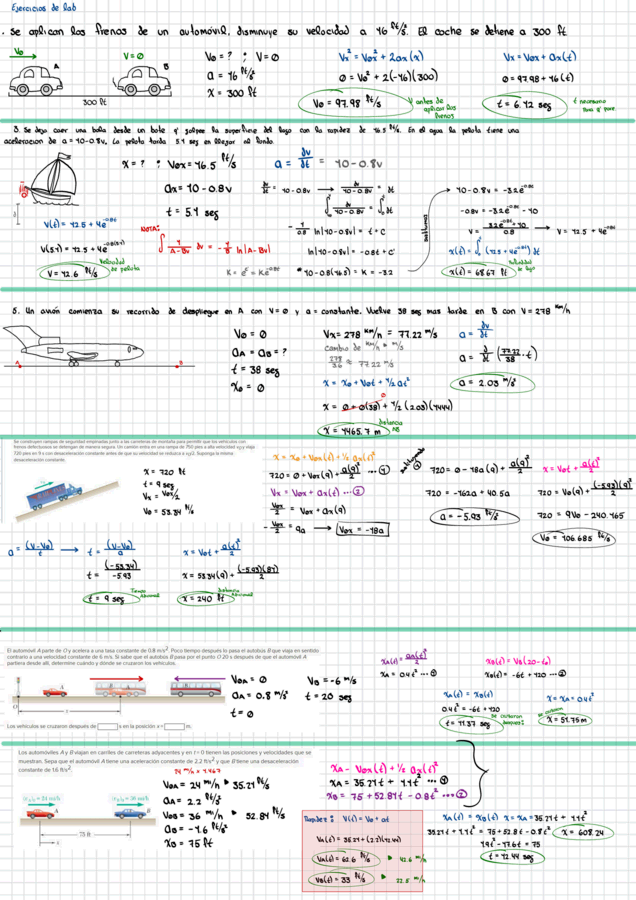 Ejercicios de lab
. Se aplican los frenos de un automóvil, disminuye su velocidad a 16 ft/s². El coche se detiene a 300 ft
V₀
A
V=0
B
300 ft
V₀ = ? ; V=0
a = 16 ft/s²
x = 300 ft
Vx² = V₀x² + 2ax(x)
0 = V₀² + 2(-16)(300)
V₀ = 97.98 ft/s
V antes de aplicar los frenos
Vx = V₀x + ax(t)
0 = 97.98 + 16(t)
t = 6.12 seg
t necesario para q' pare
3. Se deja caer una bola desde un bote q' golpea la superficie del lago con la rapidez de 16.5 ft/s. En el agua la pelota tiene una
aceleracion de a = 10-0.8v, La pelota tarda 5.1 seg en llegar al fondo.
x = ? ; V₀x = 16.5 ft/s
ax = 10 - 0.8v
t = 5.1 seg
a = dv/dt = 10-0.8v
dv/dt = 10-0.8v → dv/10-0.8v = dt
∫ dv/10-0.8v = ∫ dt
- 1/0.8 ln|10-0.8v| = t + C
ln|10-0.8v| = -0.8t + C'
K = e^c = K·e^-0.8t
* 10-0.8(16.5) = K = -3.2
sustituimos
→ 10-0.8v = -3.2e^-0.8t
-0.8v = -3.2e^-0.8t - 10
v = 3.2e^-0.8t + 10 / 0.8 → v = 12.5 + 4e^-0.8t
x(t) = ∫ (12.5 + 4e^-0.8t) dt
x(t) = 68.67 ft
d
V(t) = 12.5 + 4e^-0.8t
V(5.1) = 12.5 + 4e^-0.8(5.1)
V = 12.6 ft/s
Velocidad de pelota
NOTA:
∫ 1/A-Bv dv = -1/B ln|A-Bv|
5. Un avión comienza su recorrido de despliegue en A con V=0 y a = constante. Vuelve 38 seg mas tarde en B con V=278 km/h
A
B
V₀ = 0
aA = aB = ?
t = 38 seg
x₀ = 0
Vx = 278 km/h = 77.22 m/s
Cambio de km/h a m/s
278/3.6 ≈ 77.22 m/s
x = x₀ + V₀t + 1/2 at²
x = 0 + 0(38) + 1/2 (2.03)(1444)
x = 1465.7 m
distancia AB
a = dv/dt
a = d/dt (77.22/38 · t)
a = 2.03 m/s²
Se construyen rampas de seguridad empinadas junto a las carreteras de montaña para permitir que los vehículos con
frenos defectuosos se detengan de manera segura. Un camión entra en una rampa de 750 pies a alta velocidad v₀ y viaja
720 pies en 9 s con desaceleración constante antes de que su velocidad se reduzca a v₀/2. Suponga la misma
desaceleración constante.
x = 720 ft
t = 9 seg
Vx = V₀x/2
V₀ = 53.34 ft/s
x = x₀ + V₀x(t) + 1/2 ax(t)²
720 = 0 + V₀x(9) + a(9)²/2 ... ①
Vx = V₀x + ax(t) ... ②
V₀x/2 = V₀x + ax(9)
- V₀x/2 = 9a → V₀x = -18a
sustituyendo ①
720 = 0 - 18a(9) + a(9)²/2
720 = -162a + 40.5a
a = -5.93 ft/s²
x = V₀t + a(t)²/2
720 = V₀(9) + (-5.93)(9)²/2
720 = 9V₀ - 240.165
V₀ = 106.685 ft/s
a = (V-V₀)/t → t = (V-V₀)/a
t = (-53.34)/-5.93
t = 9 seg
Tiempo Adicional
x = V₀t + a(t)²/2
x = 53.34(9) + (-5.93)(81)/2
x = 240 ft
Distancia Adicional
El automóvil A parte de O y acelera a una tasa constante de 0.8 m/s². Poco tiempo después lo pasa el autobús B que viaja en sentido
contrario a una velocidad constante de 6 m/s. Si sabe que el autobús B pasa por el punto O 20 s después de que el automóvil A
partiera desde allí, determine cuándo y dónde se cruzaron los vehículos.
O
A
B
B
x
Los vehículos se cruzaron después de s en la posición x = m.
V₀A = 0
aA = 0.8 m/s²
t = 0
VB = -6 m/s
t = 20 seg
xA(t) = a(t)²/2
xA = 0.4t² ... ①
xB(t) = VB(20-t)
xB(t) = -6t + 120 ... ②
xA(t) = xB(t)
0.4t² = -6t + 120
t = 11.37 seg
Se cruzaron después:
x = xA = 0.4t²
se cruzan
x = 51.75 m
Los automóviles A y B viajan en carriles de carreteras adyacentes y en t = 0 tienen las posiciones y velocidades que se
muestran. Sepa que el automóvil A tiene una aceleración constante de 2.2 ft/s² y que B tiene una desaceleración
constante de 1.6 ft/s².
(vA)₀ = 24 mi/h
(vB)₀ = 36 mi/h
A
B
75 ft
x
24 m/h x 1.467
V₀A = 24 m/h ▶ 35.21 ft/s
aA = 2.2 ft/s²
V₀B = 36 m/h ▶ 52.81 ft/s
aB = -1.6 ft/s²
xB = 75 ft
xA - V₀x(t) + 1/2 ax(t)²
xA = 35.21t + 1.1t² ... ①
xB = 75 + 52.81t - 0.8t² ... ②
Rapidez: V(t) = V₀ + at
VA(t) = 35.21 + (2.2)(12.44)
VA(t) = 62.6 ft/s ▶ 42.6 m/h
VB(t) = 33 ft/s ▶ 22.5 m/h
xA(t) = xB(t)
35.21t + 1.1t² = 75 + 52.8t - 0.8t²
1.9t² - 17.6t = 75
t = 12.44 seg
x = xA = 35.21t + 1.1t²
x = 608.24